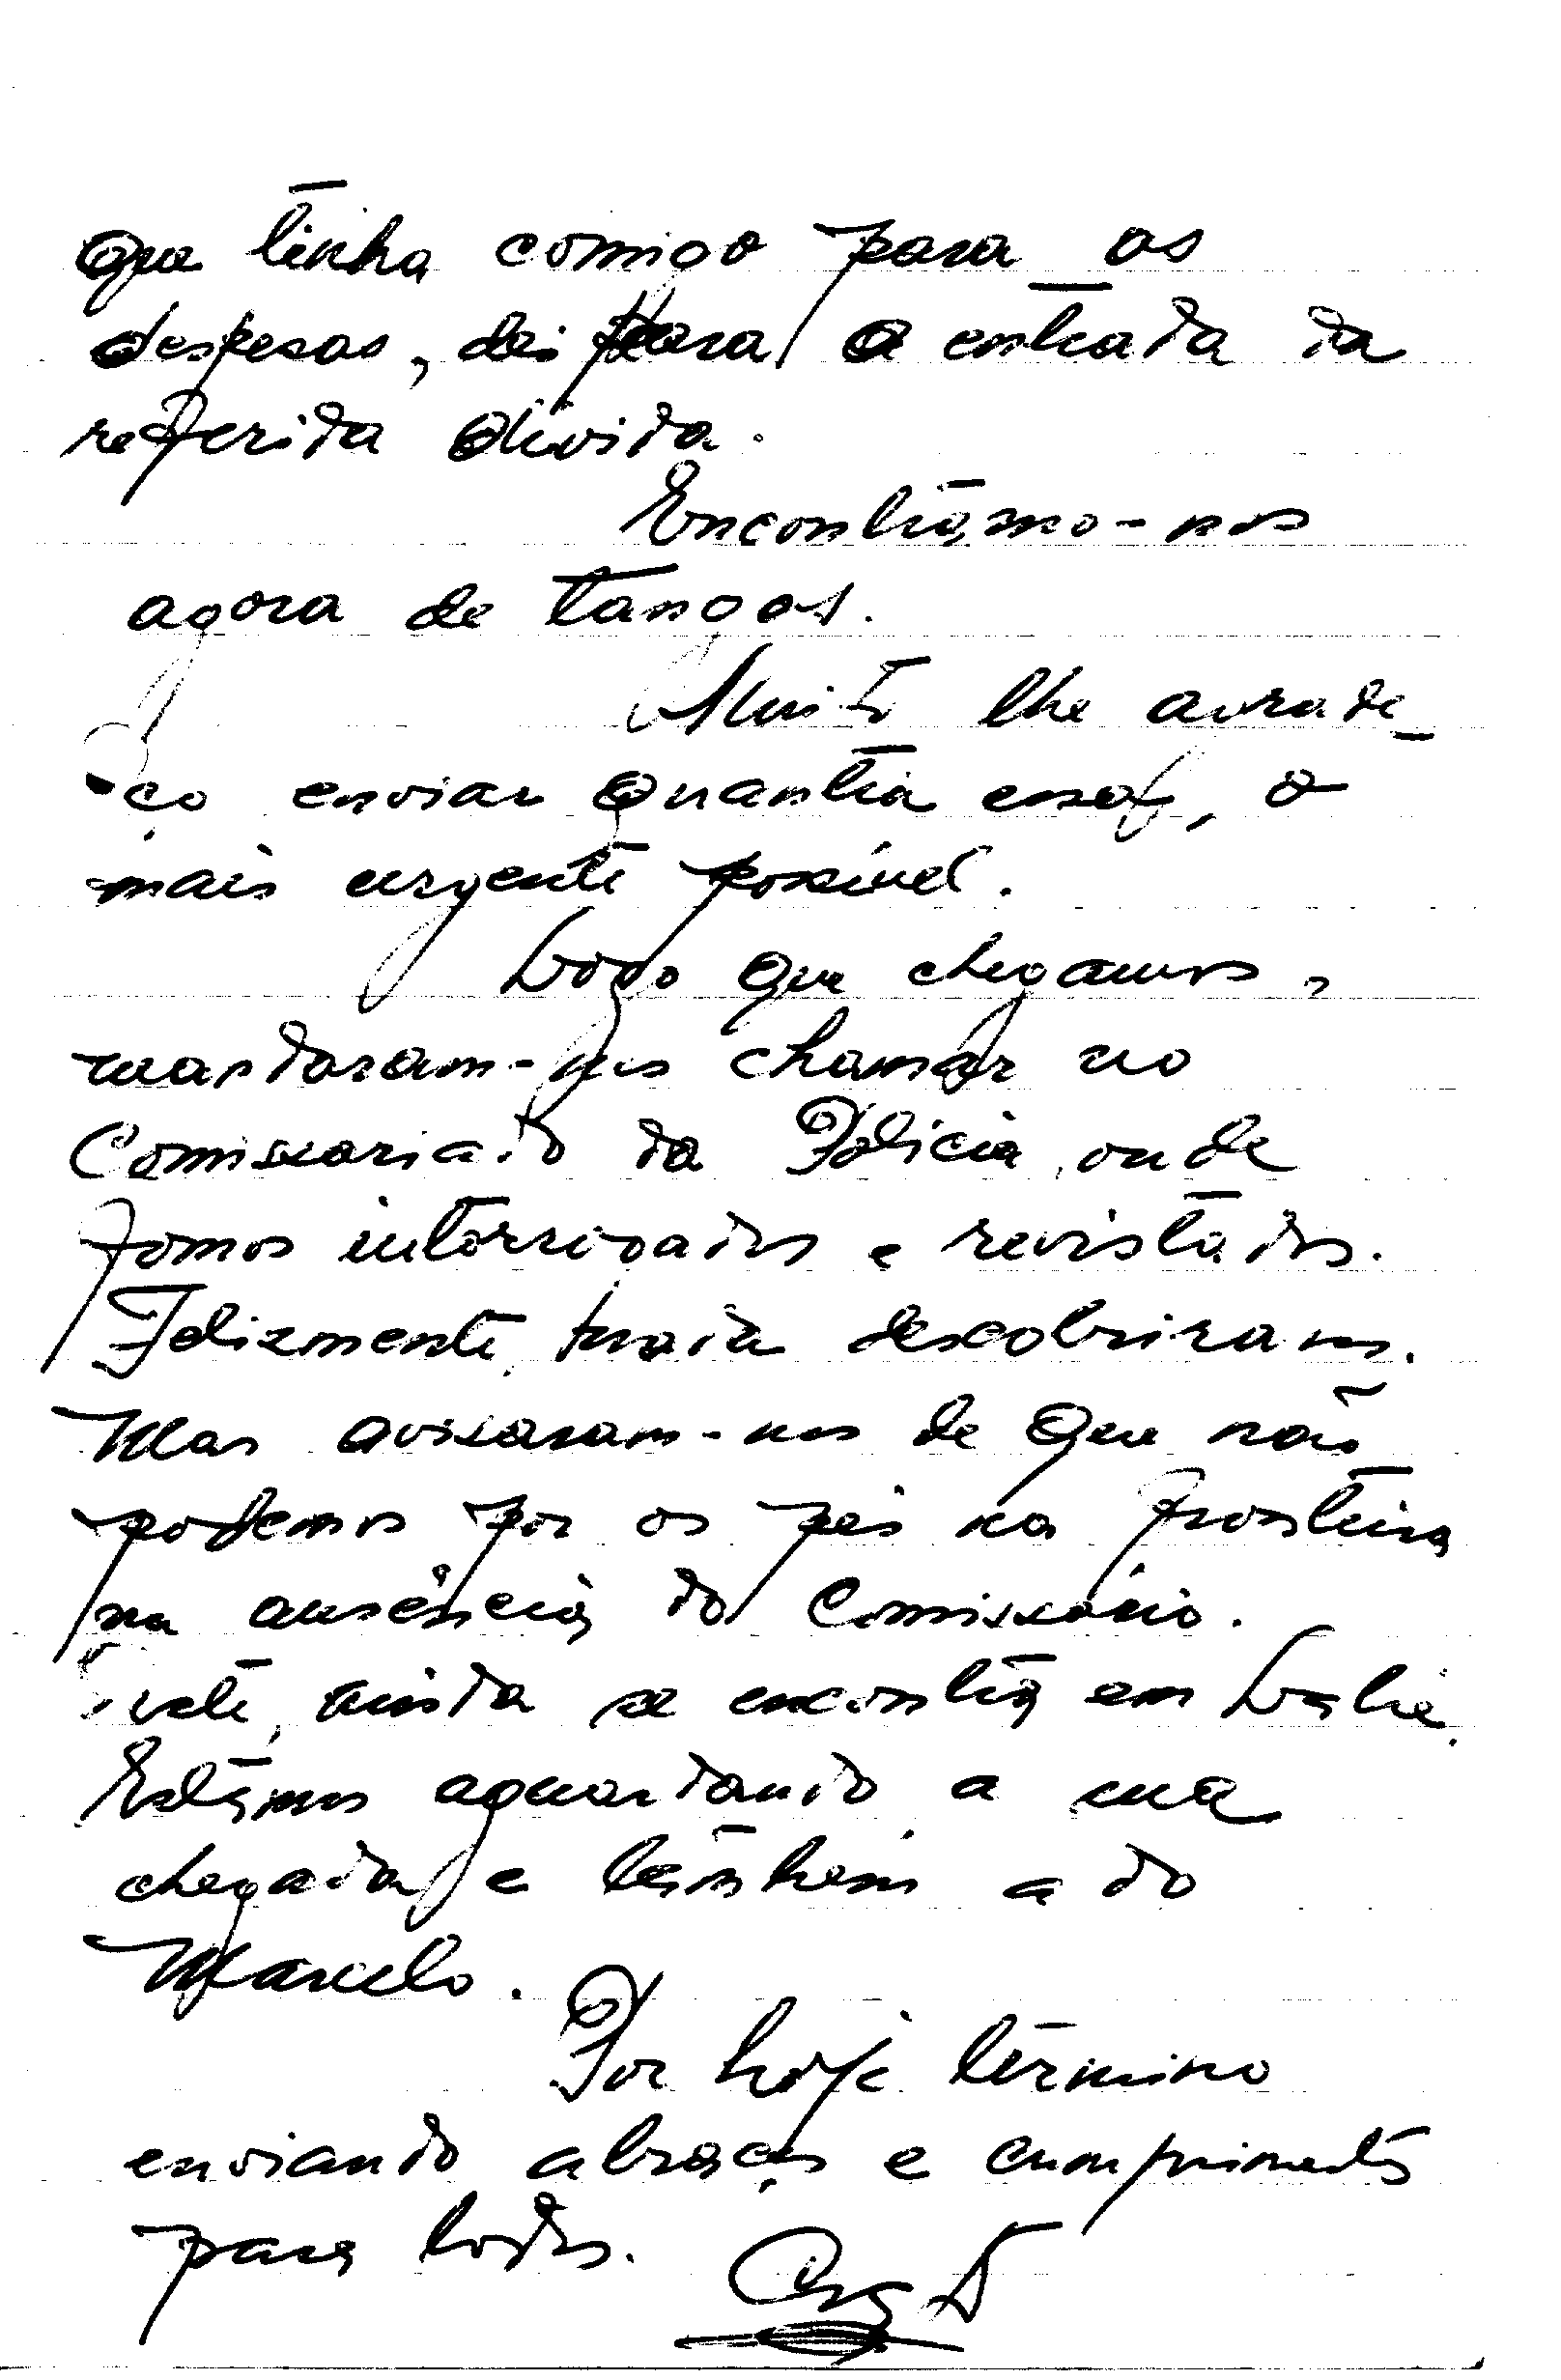 que tinha comigo para as
despesas, dei para a entrada da
referida dívida.
Encontrámo-nos
agora de tangas.
Muito lhe agrade_
ço enviar quantia essa, o
mais urgente possível.
Logo que chegamos,
mandaram-nos chamar ao
Comissariado da Polícia, onde
fomos interrogados e revistados.
Felizmente, nada descobriram.
Mas avisaram-nos de que não
podemos pôr os pés na fronteira
na ausência do Comissário.
ainda se encontra em
Estámos aguardando a sua
chegada e também a do
Marcelo.
Por hoje termino
enviando abraços e cumprimentos
para todos.